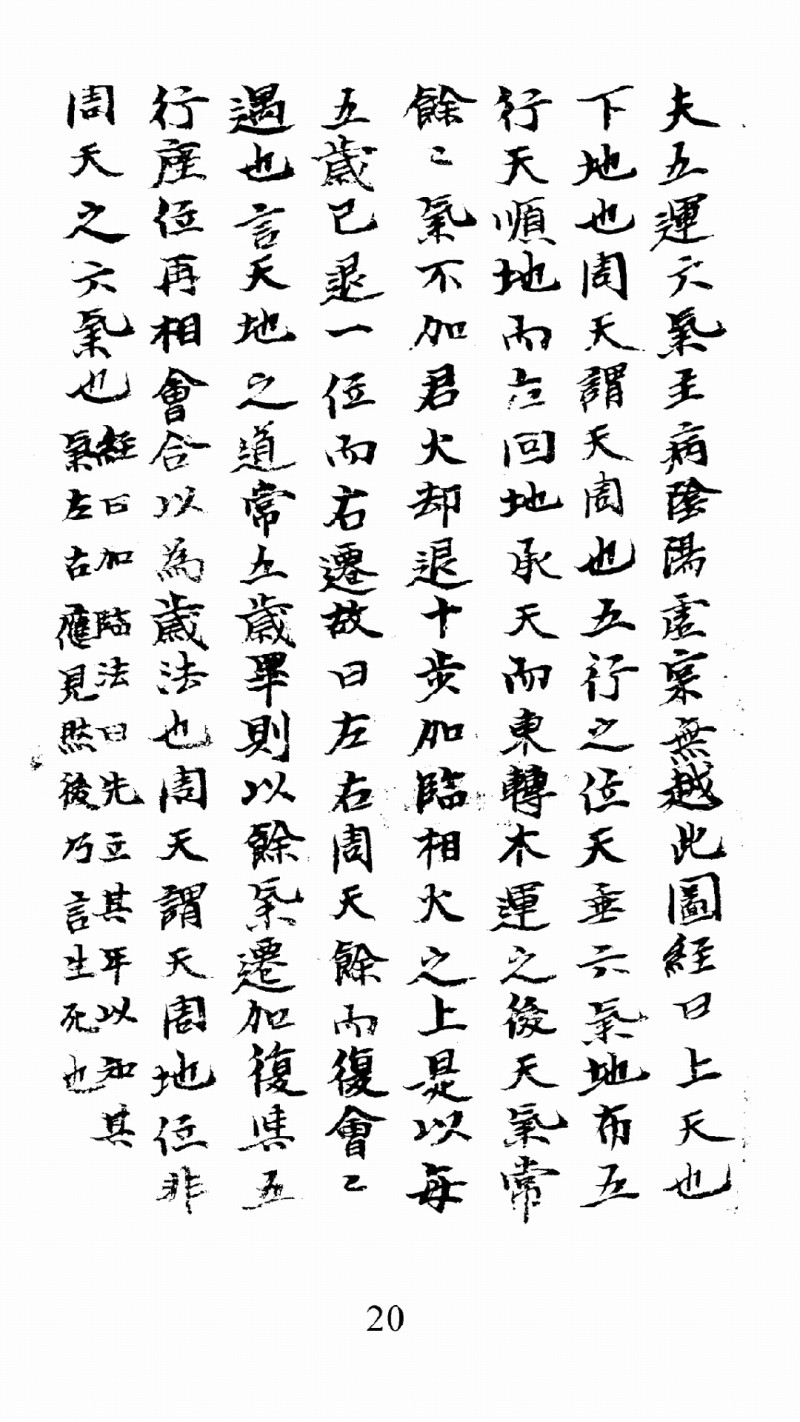 夫五運六氣主病陰陽虛実無越此圖経曰上天也
下地也周天謂天周也五行之位天垂六氣地布五
行天順地而左回地承天而東轉木運之後天氣常
餘〻氣不加君火却退十步加臨相火之上是以每
五歲已退一位而右遷故曰左右周天餘而復會〻
遇也言天地之道常五歲畢則以餘氣遷加復與五
行座位再相會合以為歲法也周天謂天周地位非
周天之六氣也経曰加臨法曰先立其年以知其
氣左右應見然後乃言生死也
20